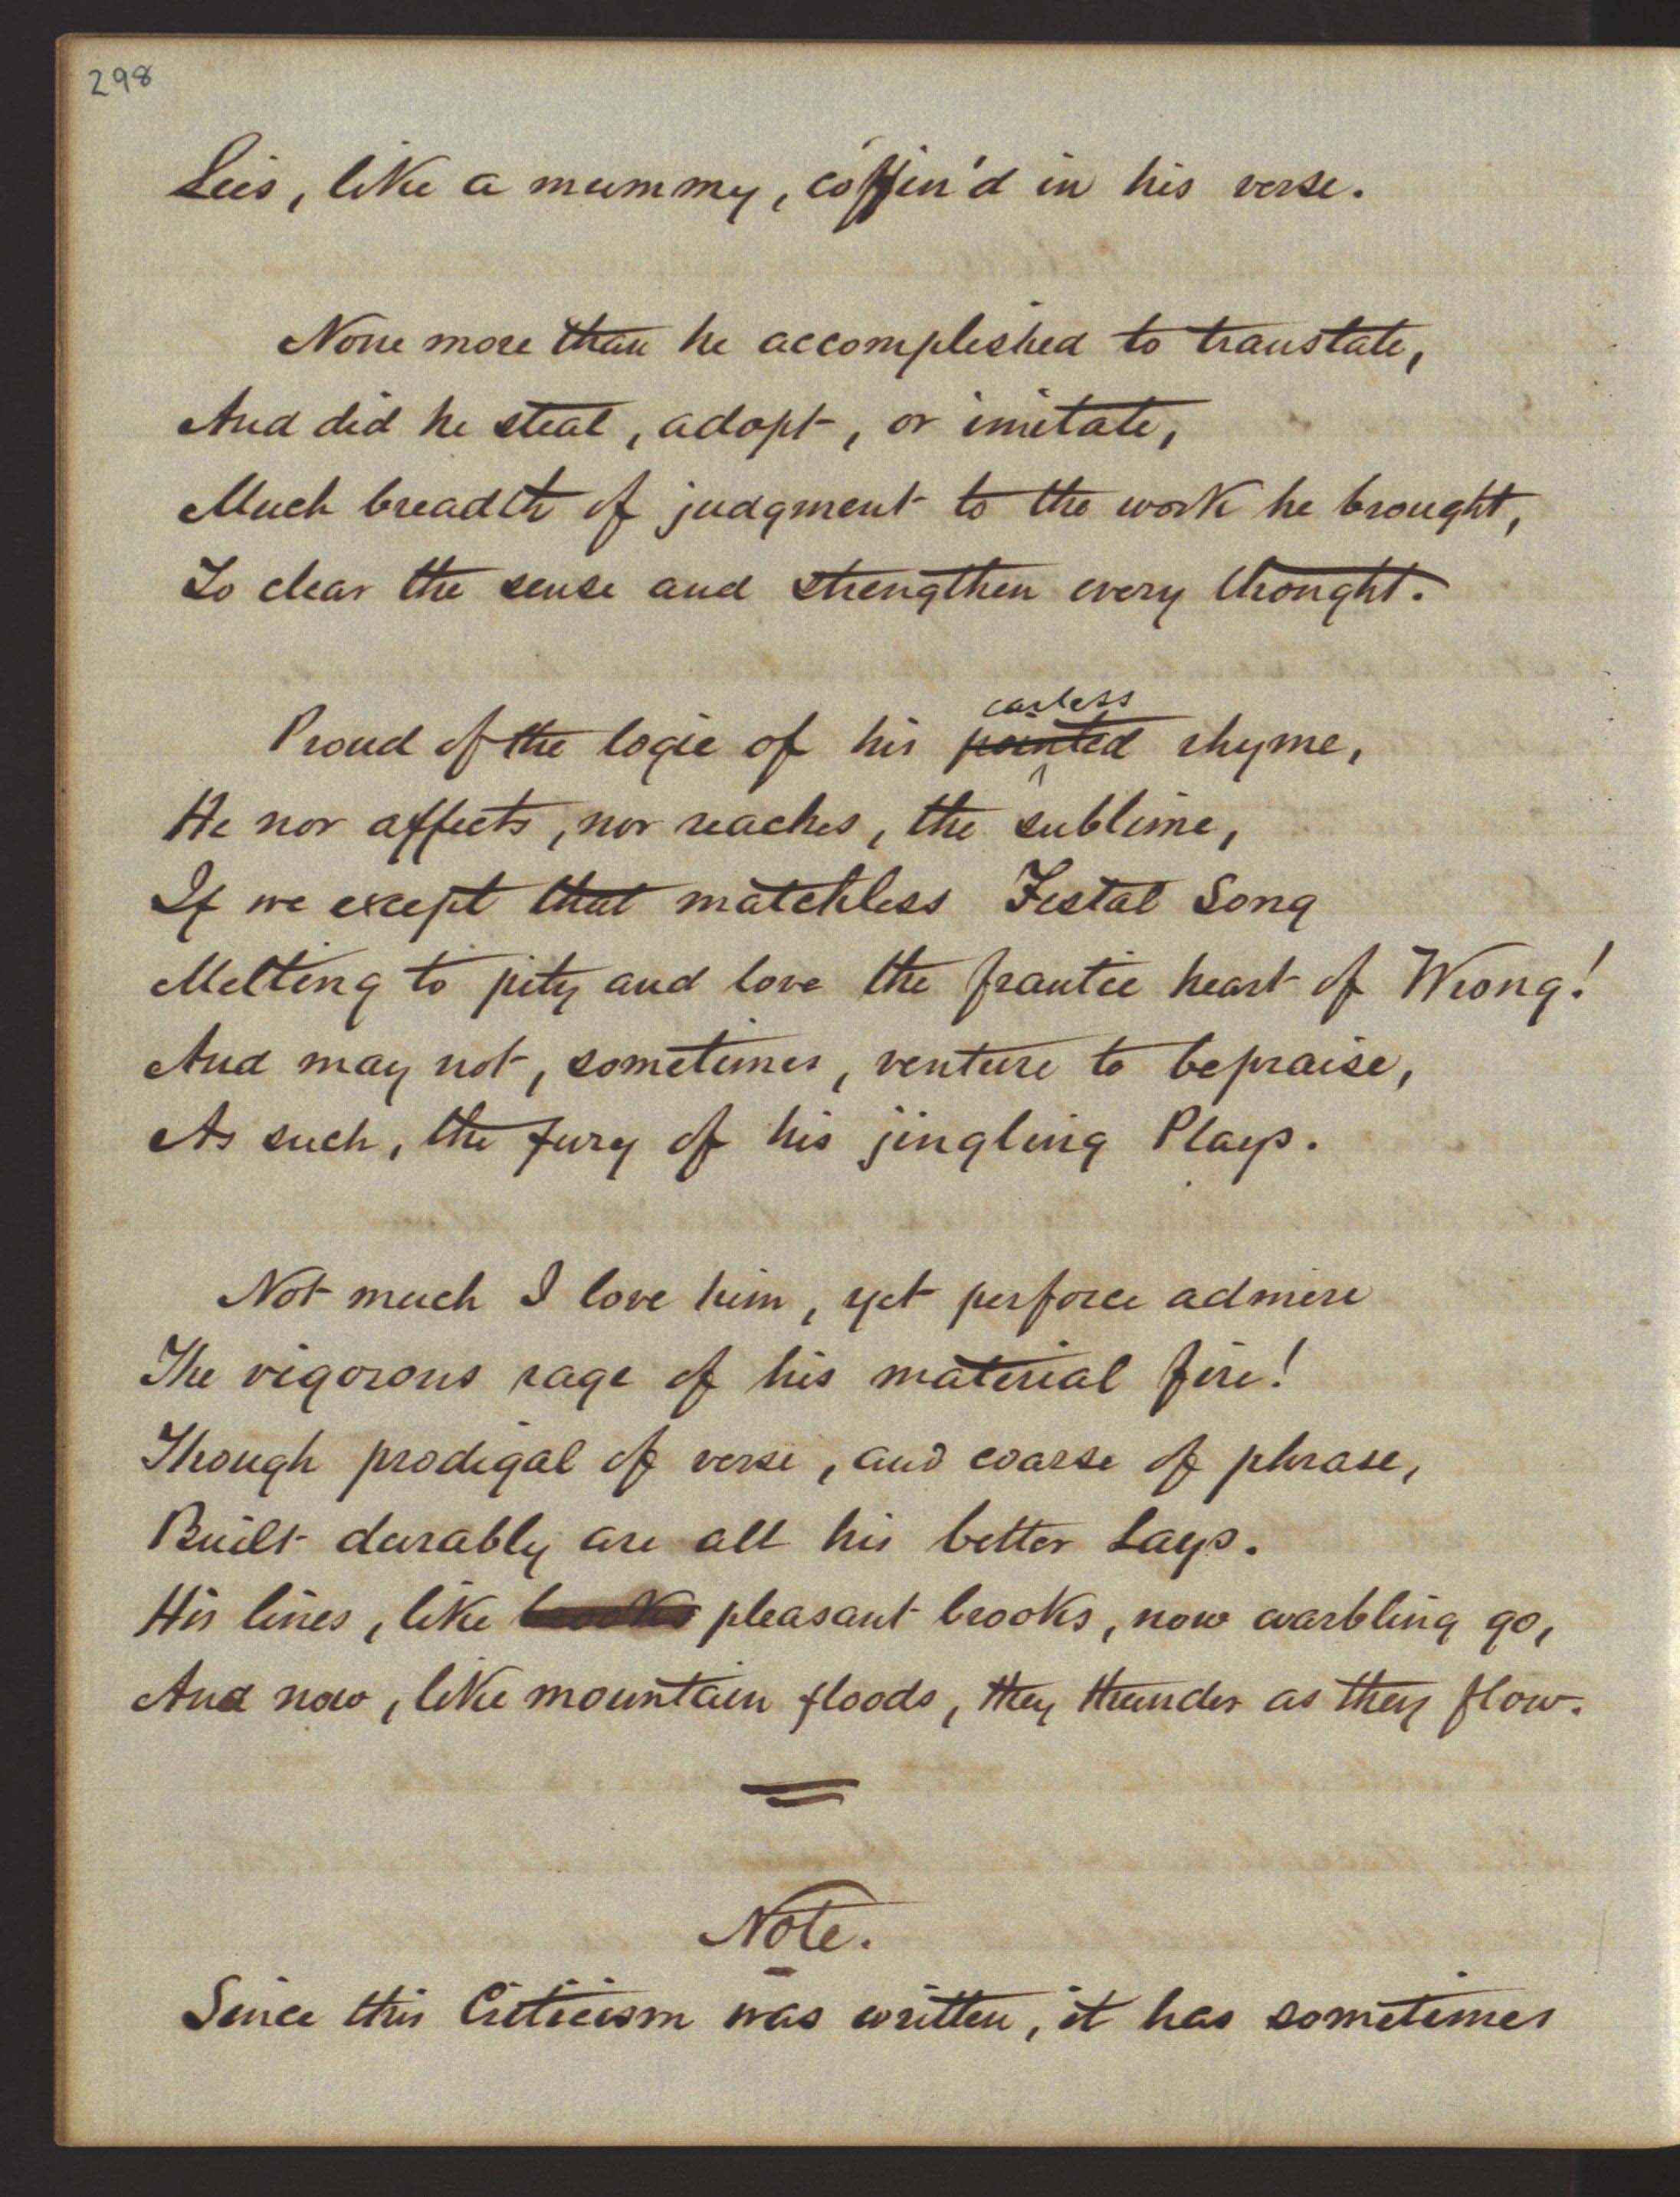 298
Lies, like a mummy, coffin'd in his verse.
None more than he accomplished to translate,
And did he steal, adopt, or imitate,
Much breadth of judgment to the work he brought,
To clear the sense and strengthen every thought.
careless
Proud of the logic of his pointed rhyme,
He nor affects, nor reaches, the sublime,
If we except that matchless Festal Song
Melting to pity and love the frantic heart of Wrong!
And may not, sometimes, venture to bepraise,
As such, the fury of his jingling Plays.
Not much I love him, yet perforce admire
The vigorous rage of his material fire!
Though prodigal of verse, and coarse of phrase,
Built durably are all his better Lays.
His lines, like pleasant brooks, now warbling go,
And now, like mountain floods, they thunder as they flow.
Note.
Since this Criticism was written, it has sometimes